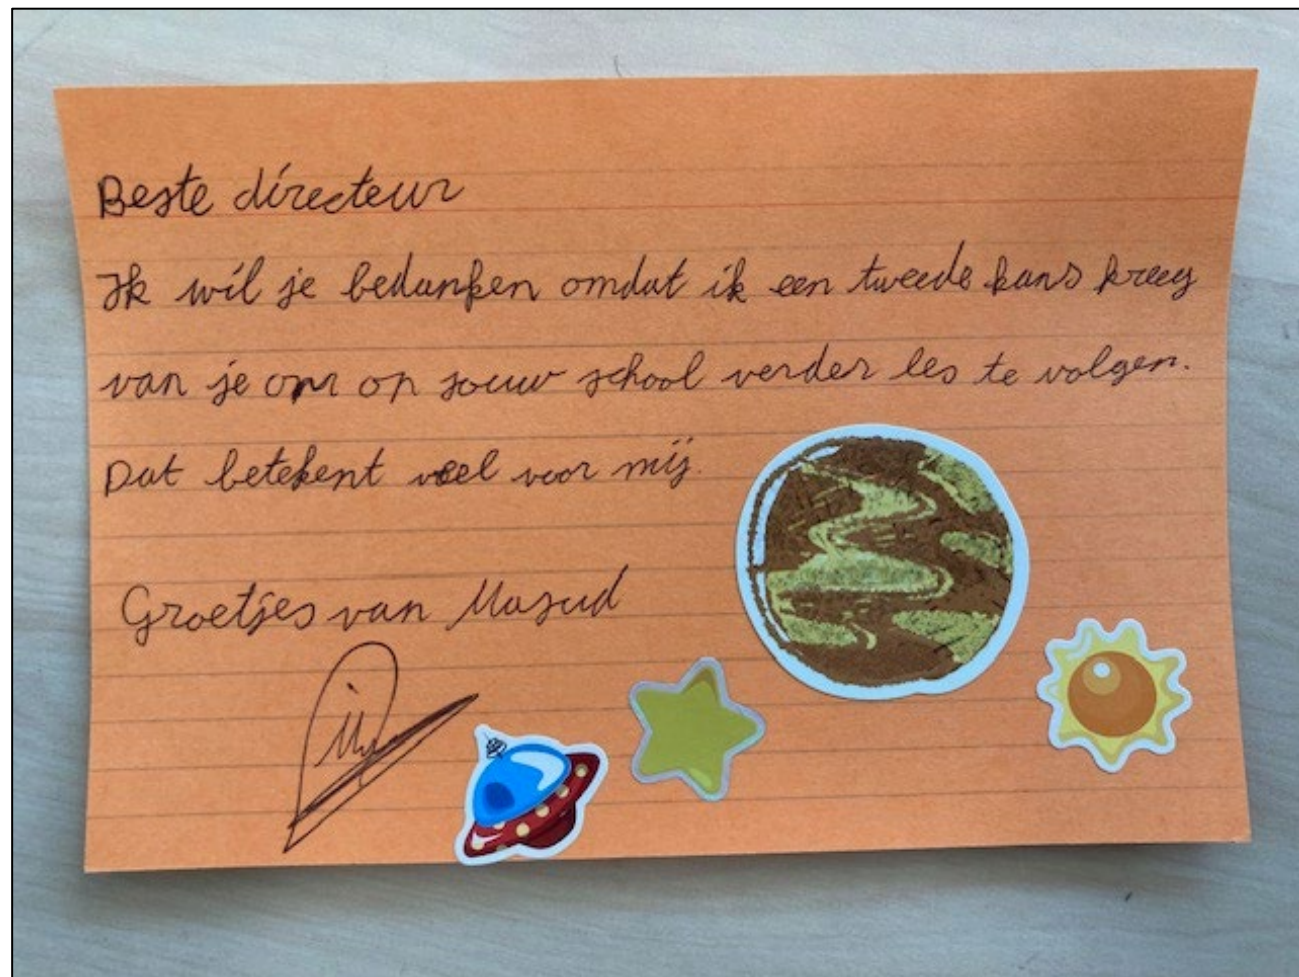 Beste directeur
Ik wil je bedanken omdat ik een tweede kans kreeg
van je om op jouw school verder les te volgen.
Dat betekent veel voor mij.
Groetjes van Masud